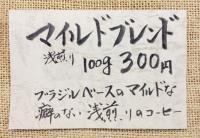 マイルドブレンド
浅煎り 100g 300円
ブラジルベースのマイルドな
癖のない浅煎りのコーヒー